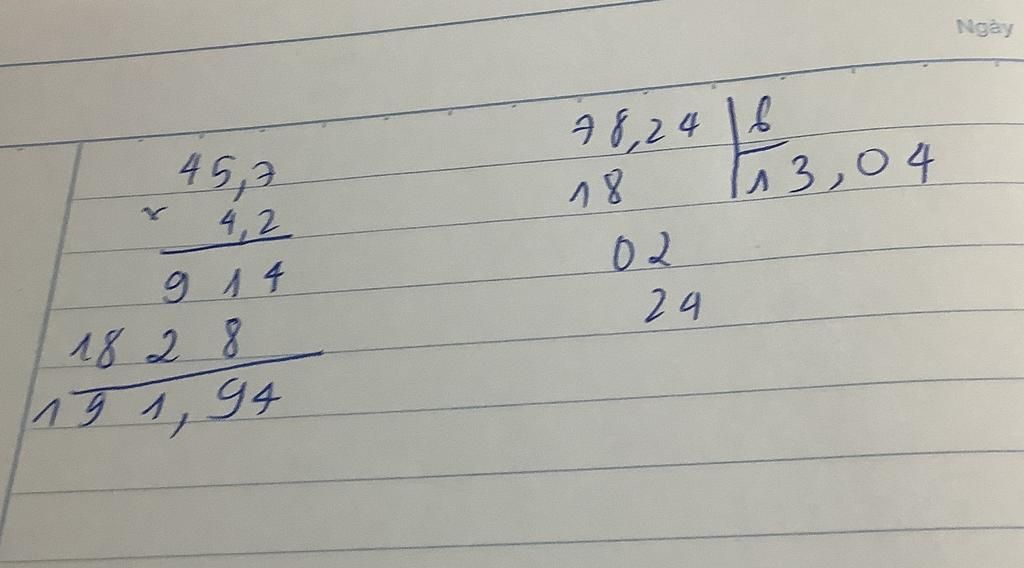 Ngày
45,7
× 4,2
914
1828
191,94
78,24 | 6
18 13,04
02
24